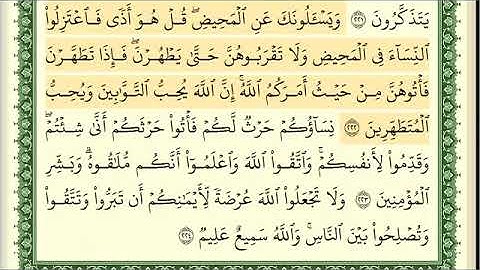 يَتَذَكَّرُونَ ﴿٢٢١﴾ وَيَسْـَٔلُونَكَ عَنِ ٱلْمَحِيضِ ۖ قُلْ هُوَ أَذًى فَٱعْتَزِلُوا۟
ٱلنِّسَآءَ فِى ٱلْمَحِيضِ ۖ وَلَا تَقْرَبُوهُنَّ حَتَّىٰ يَطْهُرْنَ ۖ فَإِذَا تَطَهَّرْنَ
فَأْتُوهُنَّ مِنْ حَيْثُ أَمَرَكُمُ ٱللَّهُ ۚ إِنَّ ٱللَّهَ يُحِبُّ ٱلتَّوَّٰبِينَ وَيُحِبُّ
ٱلْمُتَطَهِّرِينَ ﴿٢٢٢﴾ نِسَآؤُكُمْ حَرْثٌ لَّكُمْ فَأْتُوا۟ حَرْثَكُمْ أَنَّىٰ شِئْتُمْ ۖ
وَقَدِّمُوا۟ لِأَنفُسِكُمْ ۚ وَٱتَّقُوا۟ ٱللَّهَ وَٱعْلَمُوٓا۟ أَنَّكُم مُّلَٰقُوهُ ۗ وَبَشِّرِ
ٱلْمُؤْمِنِينَ ﴿٢٢٣﴾ وَلَا تَجْعَلُوا۟ ٱللَّهَ عُرْضَةً لِّأَيْمَٰنِكُمْ أَن تَبَرُّوا۟ وَتَتَّقُوا۟
وَتُصْلِحُوا۟ بَيْنَ ٱلنَّاسِ ۗ وَٱللَّهُ سَمِيعٌ عَلِيمٌ ﴿٢٢٤﴾